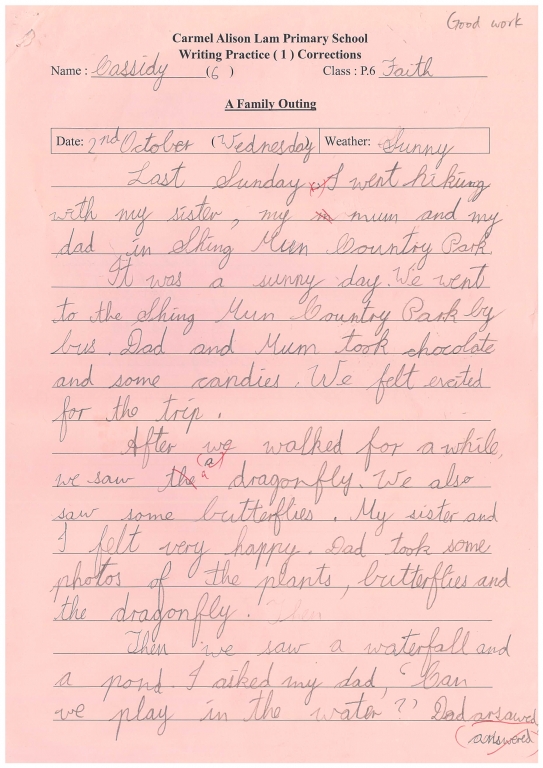 Good work
Carmel Alison Lam Primary School
Writing Practice ( 1 ) Corrections
Name : Cassidy (6 ) Class : P.6 Faith
A Family Outing
Date: 2nd October (Wednesday Weather: Sunny
Last Sunday, I went hiking
with my sister, my mum and my
dad in Shing Mun Country Park.
It was a sunny day. We went
to the Shing Mun Country Park by
bus. Dad and Mum took chocolate
and some candies. We felt excited
for the trip.
After we walked for a while,
(a)
we saw the a dragonfly. We also
saw some butterflies. My sister and
I felt very happy. Dad took some
photos of the plants, butterflies and
the dragonfly. Then
Then we saw a waterfall and
a pond. I asked my dad, 'Can
we play in the water?' Dad arsawed
(answered)